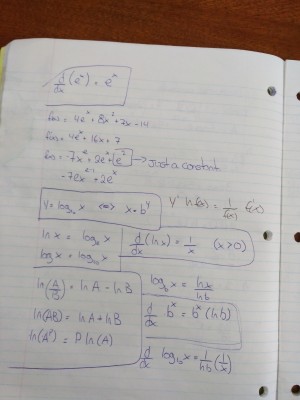 d/dx (eˣ) = eˣ
f(x) = 4eˣ + 8x² + 7x - 14
f'(x) = 4eˣ + 16x + 7
f(x) = -7xᵉ + 2eˣ + e² → Just a constant
-7exᵉ⁻¹ + 2eˣ
Y = log_b x ⟺ x = b^Y
Y' ln f(x) = 1/f(x) f'(x)
ln x = logₑ x
log x = log₁₀ x
d/dx (ln x) = 1/x (x>0)
ln(A/B) = ln A - ln B
log_b x = ln x / ln b
ln(AB) = ln A + ln B
d/dx bˣ = bˣ (ln b)
ln(Aᴾ) = P ln(A)
d/dx log_b x = 1/ln b (1/x)